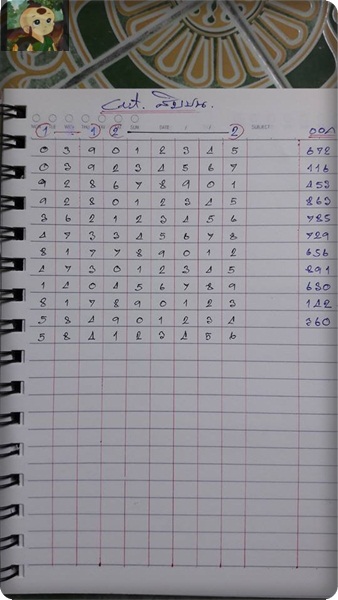 Cut.
1 1 2 2 ออก
0 3 9 0 1 2 3 4 5 672
0 3 9 2 3 4 5 6 7 116
9 2 8 6 7 8 9 0 1 453
9 2 8 0 1 2 3 4 5 863
3 6 2 1 2 3 4 5 6 785
4 7 3 3 4 5 6 7 8 729
8 1 7 7 8 9 0 1 2 656
4 7 3 0 1 2 3 4 5 891
1 4 0 4 5 6 7 8 9 630
8 1 7 8 9 0 1 2 3 142
5 8 4 9 0 1 2 3 4 360
5 8 4 1 2 3 4 5 6